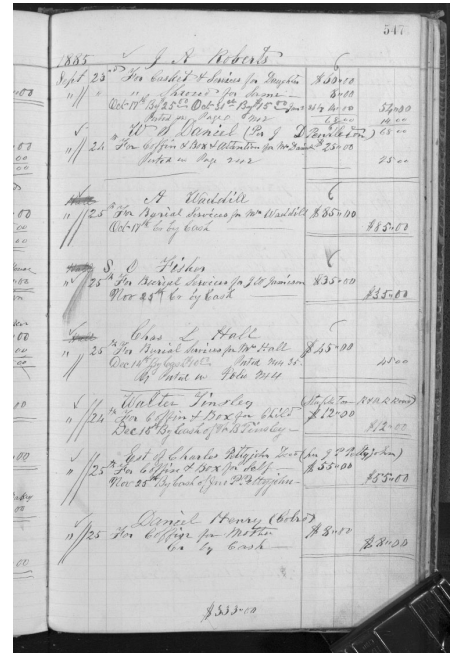 547
1885 J R Roberts
Sept 25 For Casket & Services for Daughter $60-00
" " " Shroud for Same 8-00
Oct 17th By 25 Oct 31st By 15
Posted in Page 68-00
W A Daniel (Per J D Pendleton)
" 24 For Coffin & Box & Attention for Mr Daniel $25-00
Posted in Page 25-00
A Waddill
" 25th For Burial Services for Mrs Waddill $85-00
Oct 17th Cr by Cash $85-00
S C Fisher
" 25th For Burial Services for J W $35-00
Nov 25th Cr by Cash $35-00
Chas L Hall
" 25th For Burial Services for Mrs Hall $45-00
Dec 14th By Posted 45-00
Posted in
Walter Tinsley
" 24th For Coffin & Box for Child $12-00
Dec 18th By Cash of W B Tinsley $12-00
Est of Charles Pettyjohn (Per J P Pettyjohn)
" 25th For Coffin & Box for Self $55-00
Nov 25th By Cash of Jno P Pettyjohn $55-00
Daniel Henry (Cold)
" 25 For Coffin for Mother $8-00
Cr by Cash $8-00
$333-00